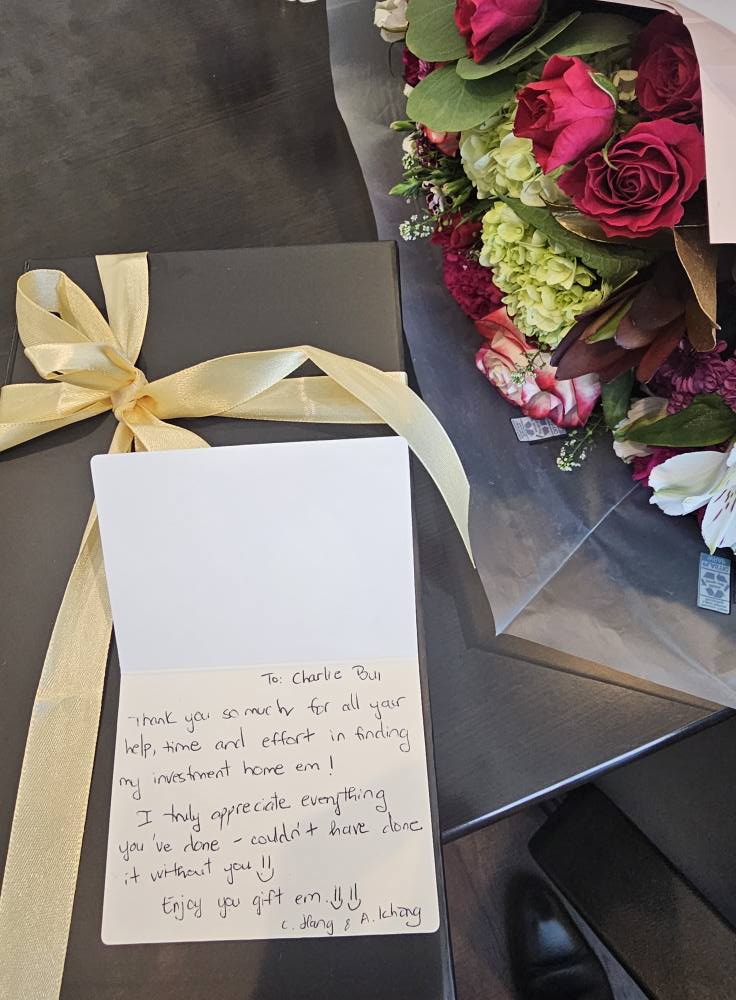 To: Charlie Bui
Thank you so much for all your
help, time and effort in finding
my investment home em!
I truly appreciate everything
you've done - couldn't have done
it without you
Enjoy you gift em.
C. Hang & A. Khang